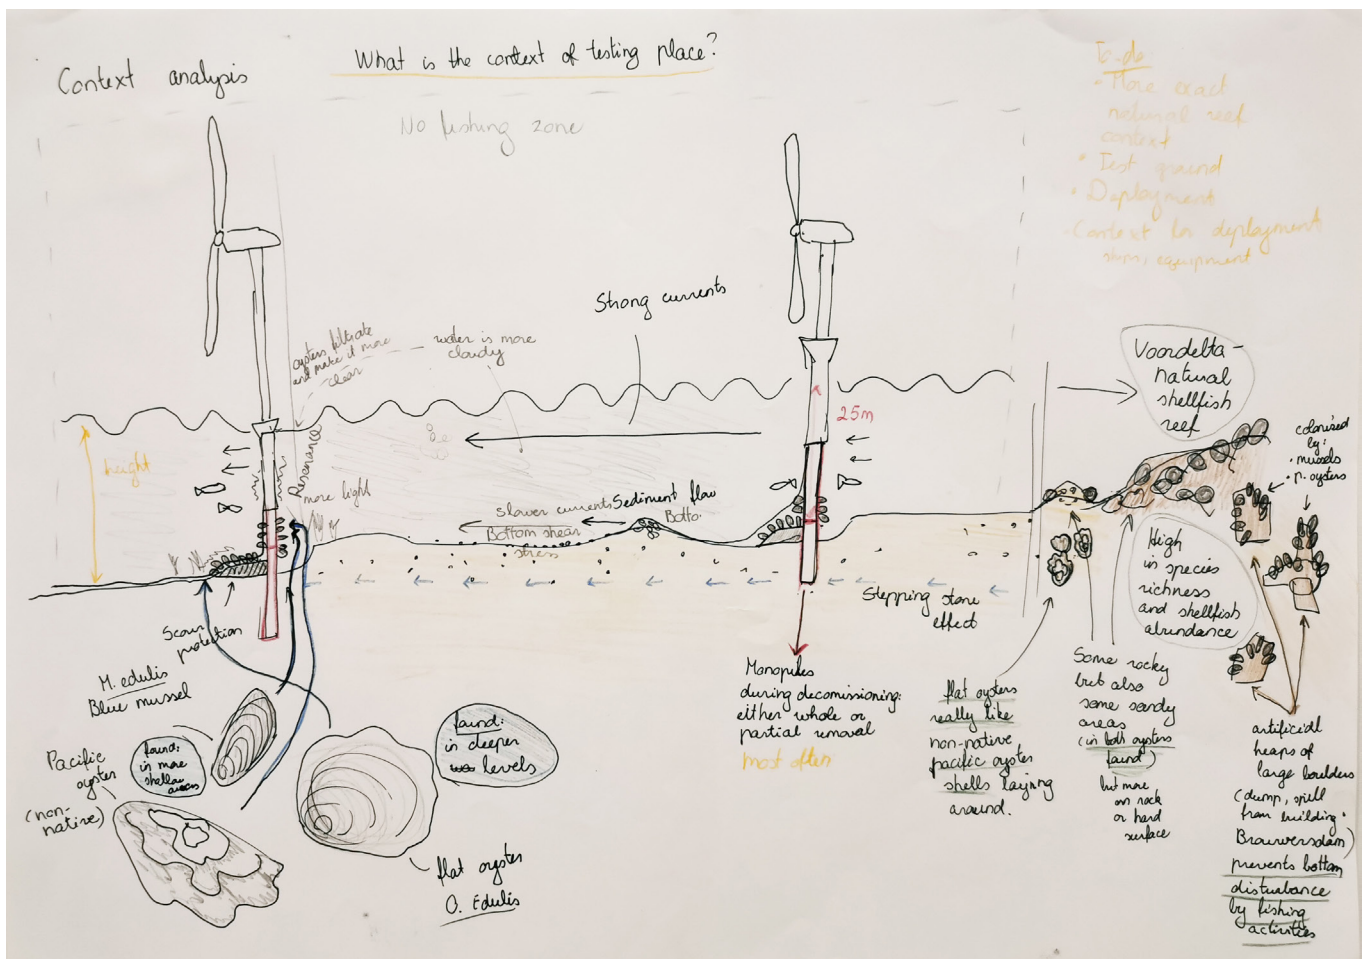 Context analysis
What is the context of testing place?
No fishing zone
To-do
• More exact
natural reef
context
• Test ground
• Deployment
-Context for deployment
ships, equipment
Strong currents
oysters filtrate
and make it more
clear
water is more
cloudy
height
Resonance
more light
25m
slower currents
Bottom shear
stress
Sediment flow
Botto.
Stepping stone
effect
Scour
protection
M. edulis
Blue mussel
found:
in more
shallow
areas
Pacific
oyster
(non-
native)
found:
in deeper
levels
flat oyster
O. Edulis
Monopiles
during decomissioning:
either whole or
partial removal
most often
Voordelta -
natural
shellfish
reef
colonised
by:
• mussels
• p. oysters
High
in species
richness
and shellfish
abundance
flat oysters
really like
non-native
pacific oyster
shells laying
around.
Some rocky
but also
some sandy
areas
(in both oysters
found)
but more
on rock
or hard
surface
artificial
heaps of
large boulders
(dump, spill
from building
Brouwersdam)
prevents bottom
disturbance
by fishing
activities